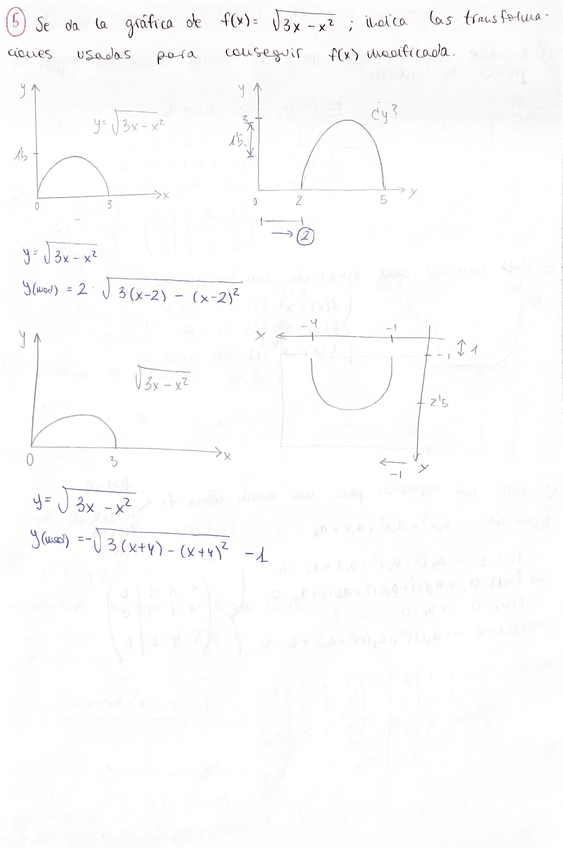 5 Se da la gráfica de f(x) = √(3x-x²) ; indica las transforma-
ciones usadas para conseguir f(x) modificada.
y
y = √(3x-x²)
1'5
0 3 x
y
3
1'5
¿y?
0 2 5 y
→ 2
y = √(3x-x²)
y(mod) = 2 · √(3(x-2) - (x-2)²)
y
√(3x-x²)
0 3 x
x -4 -1
-1 ↕ 1
2'5
← -1 y
y = √(3x-x²)
y(mod) = -√(3(x+4) - (x+4)²) -1